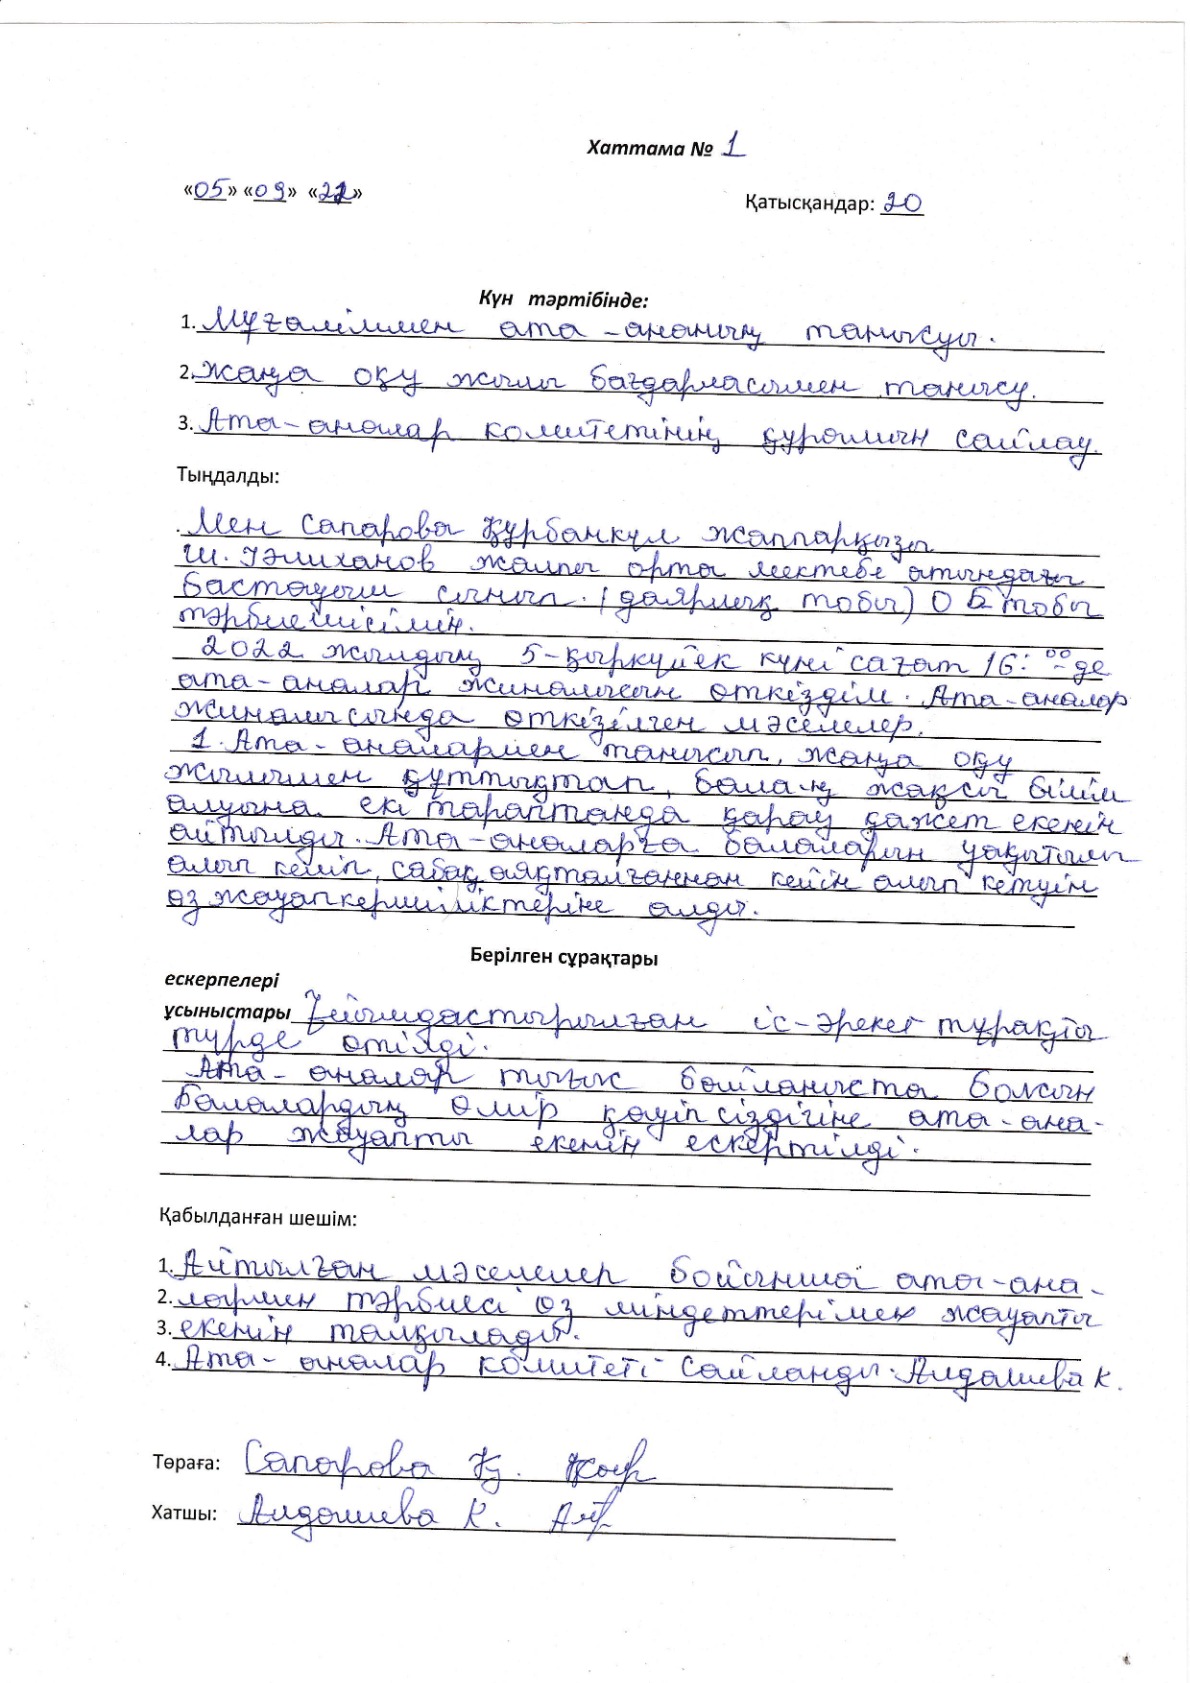 Хаттама № 1
«05» «09» «22»
Қатысқандар: 20
Күн тәртібінде:
1. Мұғаліммен ата-ананың танысуы.
2. Жаңа оқу жылы бағдармасымен танысу.
3. Ата-аналар комитетінің құрамын сайлау.
Тыңдалды:
. Мен Сапарова Құрбанкүл Жаппарқызы
Ш. Уәлиханов жалпы орта мектебе атындағы
бастауыш сынып. (даярлық тобы) 0 Б тобы
тәрбиешісімін.
2022 жылдың 5-қыркүйек күні сағат 16:00-де
ата-аналар жиналысын өткіздім. Ата-аналар
жиналысында өткізілген мәселелер.
1. Ата-аналармен танысып, жаңа оқу
жылымен құттықтап, бала-ң жақсы білім
алуына екі тараптанда қарау қажет екенін
айтылды. Ата-аналарға балаларын уақытылы
алып келіп, сабақ аяқталғаннан кейін алып кетуін
өз жауапкершіліктеріне алды.
Берілген сұрақтары
ескерпелері
ұсыныстары Ұйымдастырылған іс-әрекет тұрақты
түрде өтілді.
Ата-аналар тығыс байланыста болсын
Балалардың өмір қауіпсіздігіне ата-ана-
лар жауапты екенін ескертілді.
Қабылданған шешім:
1. Айтылған мәселелер бойынша ата-ана-
2. лармен тәрбиесі өз міндеттерімен жауапты
3. екенін талқылады.
4. Ата-аналар комитеті сайланды. Алдашева К.
Төраға: Сапарова Қ.
Хатшы: Алдашева К.